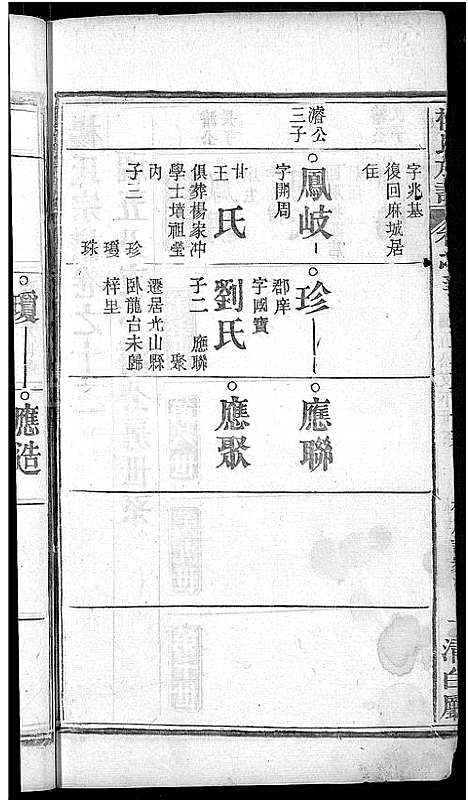 字兆基
復回麻城居
住
濬公
三子
鳳岐
字開周
甘
王
氏
俱葬楊家冲
學士墳祖塋
內
子三 珍
瓊
珠
珍
郡庠
字國寶
劉氏
子二 應聯
聚
遷居光山縣
臥龍台未歸
梓里
應聯
應聚
瓊
應浩
清白